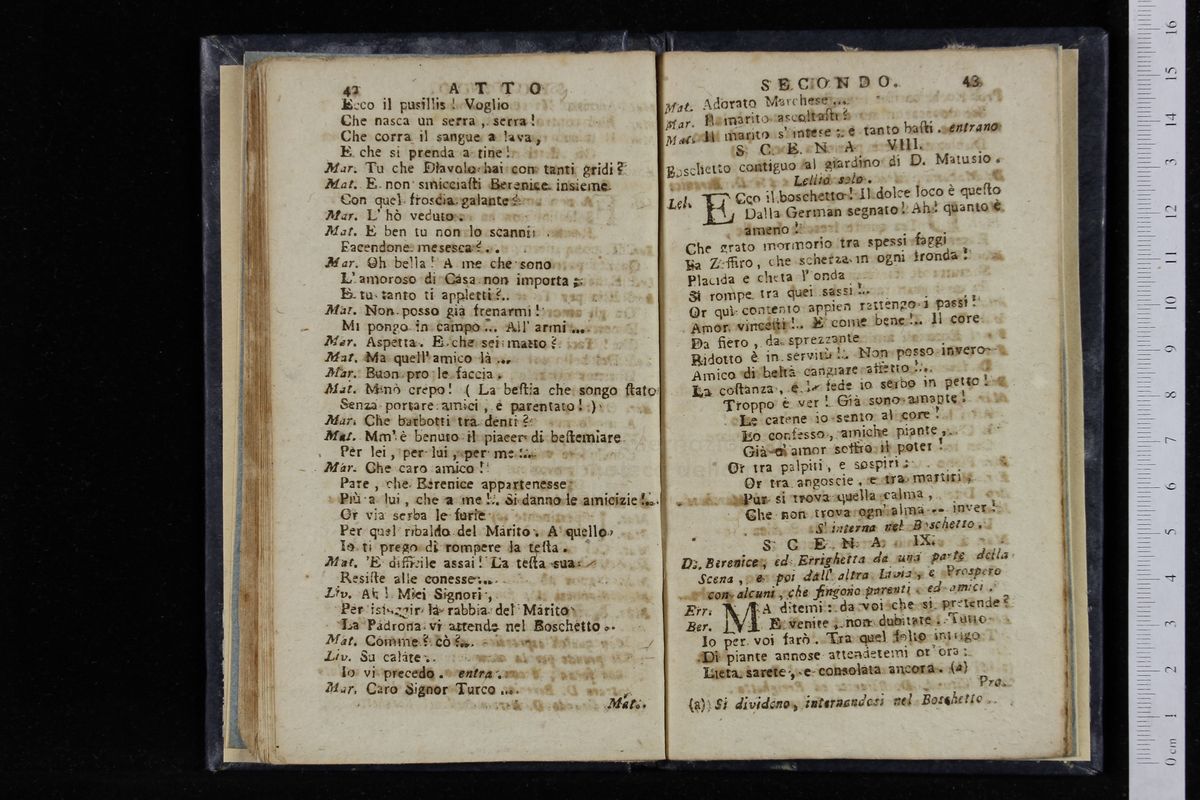 42 ATTO
Ecco il pusillis! Voglio
Che nasca un serra, serra!
Che corra il sangue a lava,
E che si prenda a tine!
Mar. Tu che Diavolo hai con tanti gridi?
Mat. E non smicciasti Berenice insieme
Con quel froscia galante?
Mar. L'hò veduto.
Mat. E ben tu non lo scanni
Facendone mesesca?..
Mar. Oh bella! A me che sono
L'amoroso di Casa non importa;
E tu tanto ti appletti?..
Mat. Non posso gia frenarmi!
Mi pongo in campo... All'armi...
Mar. Aspetta. E che sei matto?
Mat. Ma quell'amico là...
Mar. Buon pro le faccia.
Mat. Mmò crepo! (La bestia che songo stato
Senza portare amici, e parentato!)
Mar. Che barbotti tra denti?
Mat. Mm'è benuto il piacer di bestemiare
Per lei, per lui, per me!..
Mar. Che caro amico!
Pare, che Berenice appartenesse
Più a lui, che a me!. Si danno le amicizie!..
Or via serba le furie
Per quel ribaldo del Marito. A quello
Io ti prego di rompere la testa.
Mat. 'E difficile assai! La testa sua
Resiste alle conesse...
Liv. Ah! Miei Signori,
Per isfuggir la rabbia del Marito
La Padrona vi attende nel Boschetto..
Mat. Comme? cò?..
Liv. Su calate..
Io vi precedo. entra.
Mar. Caro Signor Turco...
Mat.
SECONDO. 43
Mat. Adorato Marchese...
Mar. Il marito ascoltasti?
Mat. Il marito s'intese; e tanto basti. entrano
SCENA VIII.
Boschetto contiguo al giardino di D. Matusio.
Lellio solo.
Lel. ECco il boschetto! Il dolce loco è questo
Dalla German segnato! Ah! quanto è
ameno!
Che grato mormorio tra spessi faggi
Fa Zeffiro, che scherza in ogni fronda!
Placida e cheta l'onda
Si rompe tra quei sassi!..
Or quì contento appien rattengo i passi!
Amor vincesti!.. E come bene!.. Il core
Da fiero, da sprezzante
Ridotto è in servitù!.. Non posso invero
Amico di beltà cangiare affetto!..
La costanza, e la fede io serbo in petto!
Troppo è ver! Già sono amante!
Le catene io sento al core!
Lo confesso, amiche piante,
Già d'amor soffro il poter!
Or tra palpiti, e sospiri;
Or tra angoscie, e tra martiri,
Pur si trova quella calma,
Che non trova ogn'alma -- inver!
S'interna nel Boschetto.
SCENA IX.
D. Berenice, ed Errighetta da una parte della
Scena, e poi dall'altra Livia, e Prospero
con alcuni, che fingono parenti, ed amici.
Err. MA ditemi: da voi che si pretende?
Ber. E venite, non dubitate. Tutto
Io per voi farò. Tra quel folto intrigo
Di piante annose attendetemi or'ora:
Lieta sarete, e consolata ancora. (a)
Pro.
(a) Si dividono, internandosi nel Boschetto.